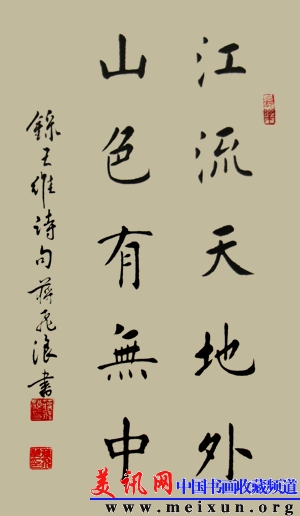 江流天地外
山色有無中
錄王維詩句 蔣飛浪書
美讯网 中国书画收藏频道
www.meixun.org